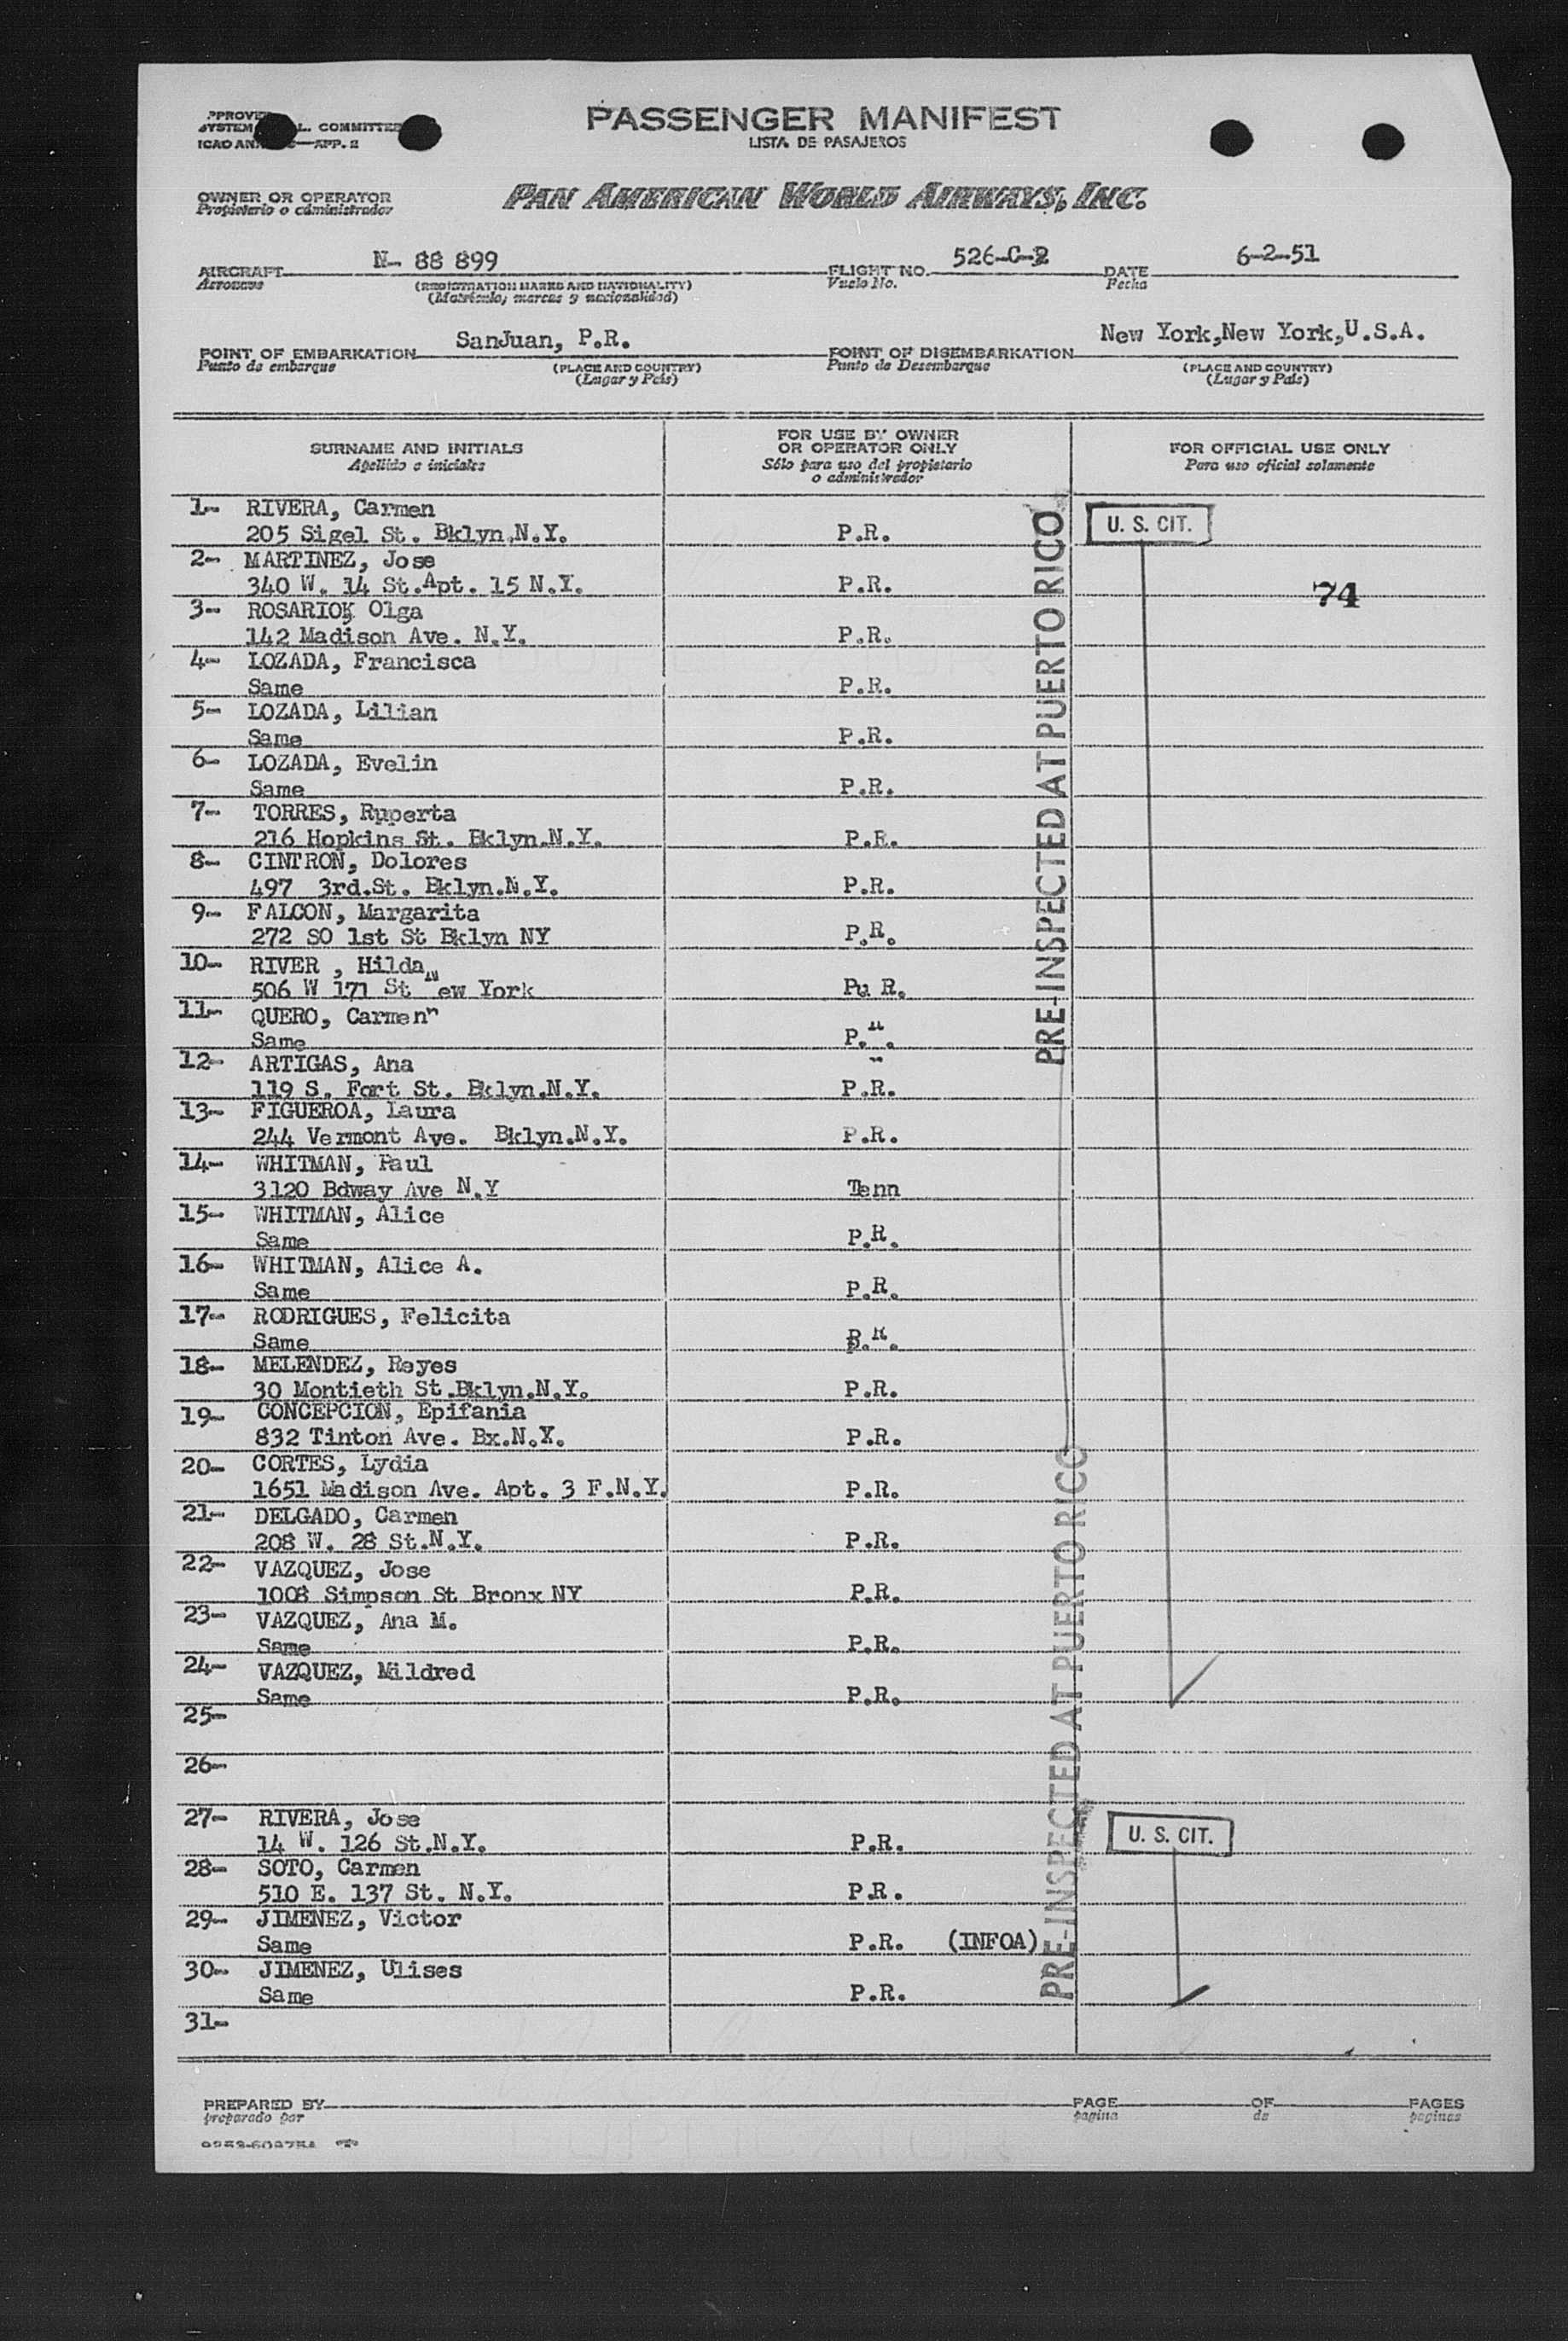 L. COMMITTEE
APP. 2
PASSENGER MANIFEST
LISTA DE PASAJEROS
OWNER OR OPERATOR
Propietario o administrador
PAN AMERICAN WORLD AIRWAYS, INC.
AIRCRAFT N- 88 899 FLIGHT NO. 526-C-2 DATE 6-2-51
Aeronave (REGISTRATION MARKS AND NATIONALITY) Vuelo No. Fecha
(Matrícula, marcas y nacionalidad)
POINT OF EMBARKATION SanJuan, P.R. POINT OF DISEMBARKATION New York,New York,U.S.A.
Punto de embarque (PLACE AND COUNTRY) Punto de Desembarque (PLACE AND COUNTRY)
(Lugar y País) (Lugar y País)
SURNAME AND INITIALS
Apellido e iniciales
FOR USE BY OWNER
OR OPERATOR ONLY
Sólo para uso del propietario
o administrador
FOR OFFICIAL USE ONLY
Para uso oficial solamente
1- RIVERA, Carmen
205 Sigel St. Bklyn.N.Y. P.R. U. S. CIT.
2- MARTINEZ, Jose
340 W. 14 St.Apt. 15 N.Y. P.R. 74
3- ROSARIO, Olga
142 Madison Ave. N.Y. P.R.
4- LOZADA, Francisca
Same P.R.
5- LOZADA, Lilian
Same P.R.
6- LOZADA, Evelin
Same P.R.
7- TORRES, Ruperta
216 Hopkins St. Bklyn.N.Y. P.R.
8- CINTRON, Dolores
497 3rd.St. Bklyn.N.Y. P.R.
9- FALCON, Margarita
272 SO 1st St Bklyn NY P.R.
10- RIVER , Hilda
506 W 171 St New York Pu R.
11- QUERO, Carmen"
Same P.".
12- ARTIGAS, Ana
119 S. Fort St. Bklyn.N.Y. P.R.
13- FIGUEROA, Laura
244 Vermont Ave. Bklyn.N.Y. P.R.
14- WHITMAN, Paul
3120 Bdway Ave N.Y Tenn
15- WHITMAN, Alice
Same P.R.
16- WHITMAN, Alice A.
Same P.R.
17- RODRIGUES, Felicita
Same P.R.
18- MELENDEZ, Reyes
30 Montieth St.Bklyn.N.Y. P.R.
19- CONCEPCION, Epifania
832 Tinton Ave. Bx.N.Y. P.R.
20- CORTES, Lydia
1651 Madison Ave. Apt. 3 F.N.Y. P.R.
21- DELGADO, Carmen
208 W. 28 St.N.Y. P.R.
22- VAZQUEZ, Jose
1008 Simpson St Bronx NY P.R.
23- VAZQUEZ, Ana M.
Same P.R.
24- VAZQUEZ, Mildred
Same P.R.
25-
26-
27- RIVERA, Jose
14 W. 126 St.N.Y. P.R. U. S. CIT.
28- SOTO, Carmen
510 E. 137 St. N.Y. P.R.
29- JIMENEZ, Victor
Same P.R. (INFOA)
30- JIMENEZ, Ulises
Same P.R.
31-
PRE-INSPECTED AT PUERTO RICO
PRE-INSPECTED AT PUERTO RICO
PREPARED BY PAGE OF PAGES
preparado por pagina de paginas